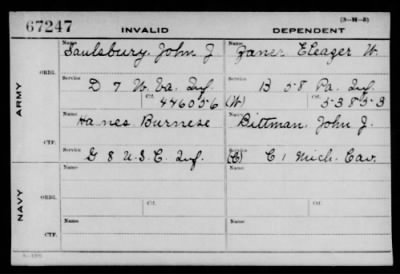 67247
INVALID
DEPENDENT
(3-M-3)
ARMY
ORIG.
Name Saulsbury, John J
Name Zaner Eleazer W.
Service D 7 W. Va. Inf.
Service B 58 Pa. Inf.
Ctf. 446056
(W) Ctf. 53853
CTF.
Name Hanes Burnese
Name Bittman, John J.
Service G 8 U.S.C. Inf.
Service (C) C 1 Mich. Cav.
NAVY
ORIG.
Name
Name
Service
Ctf.
Service
Ctf.
CTF.
Name
Name